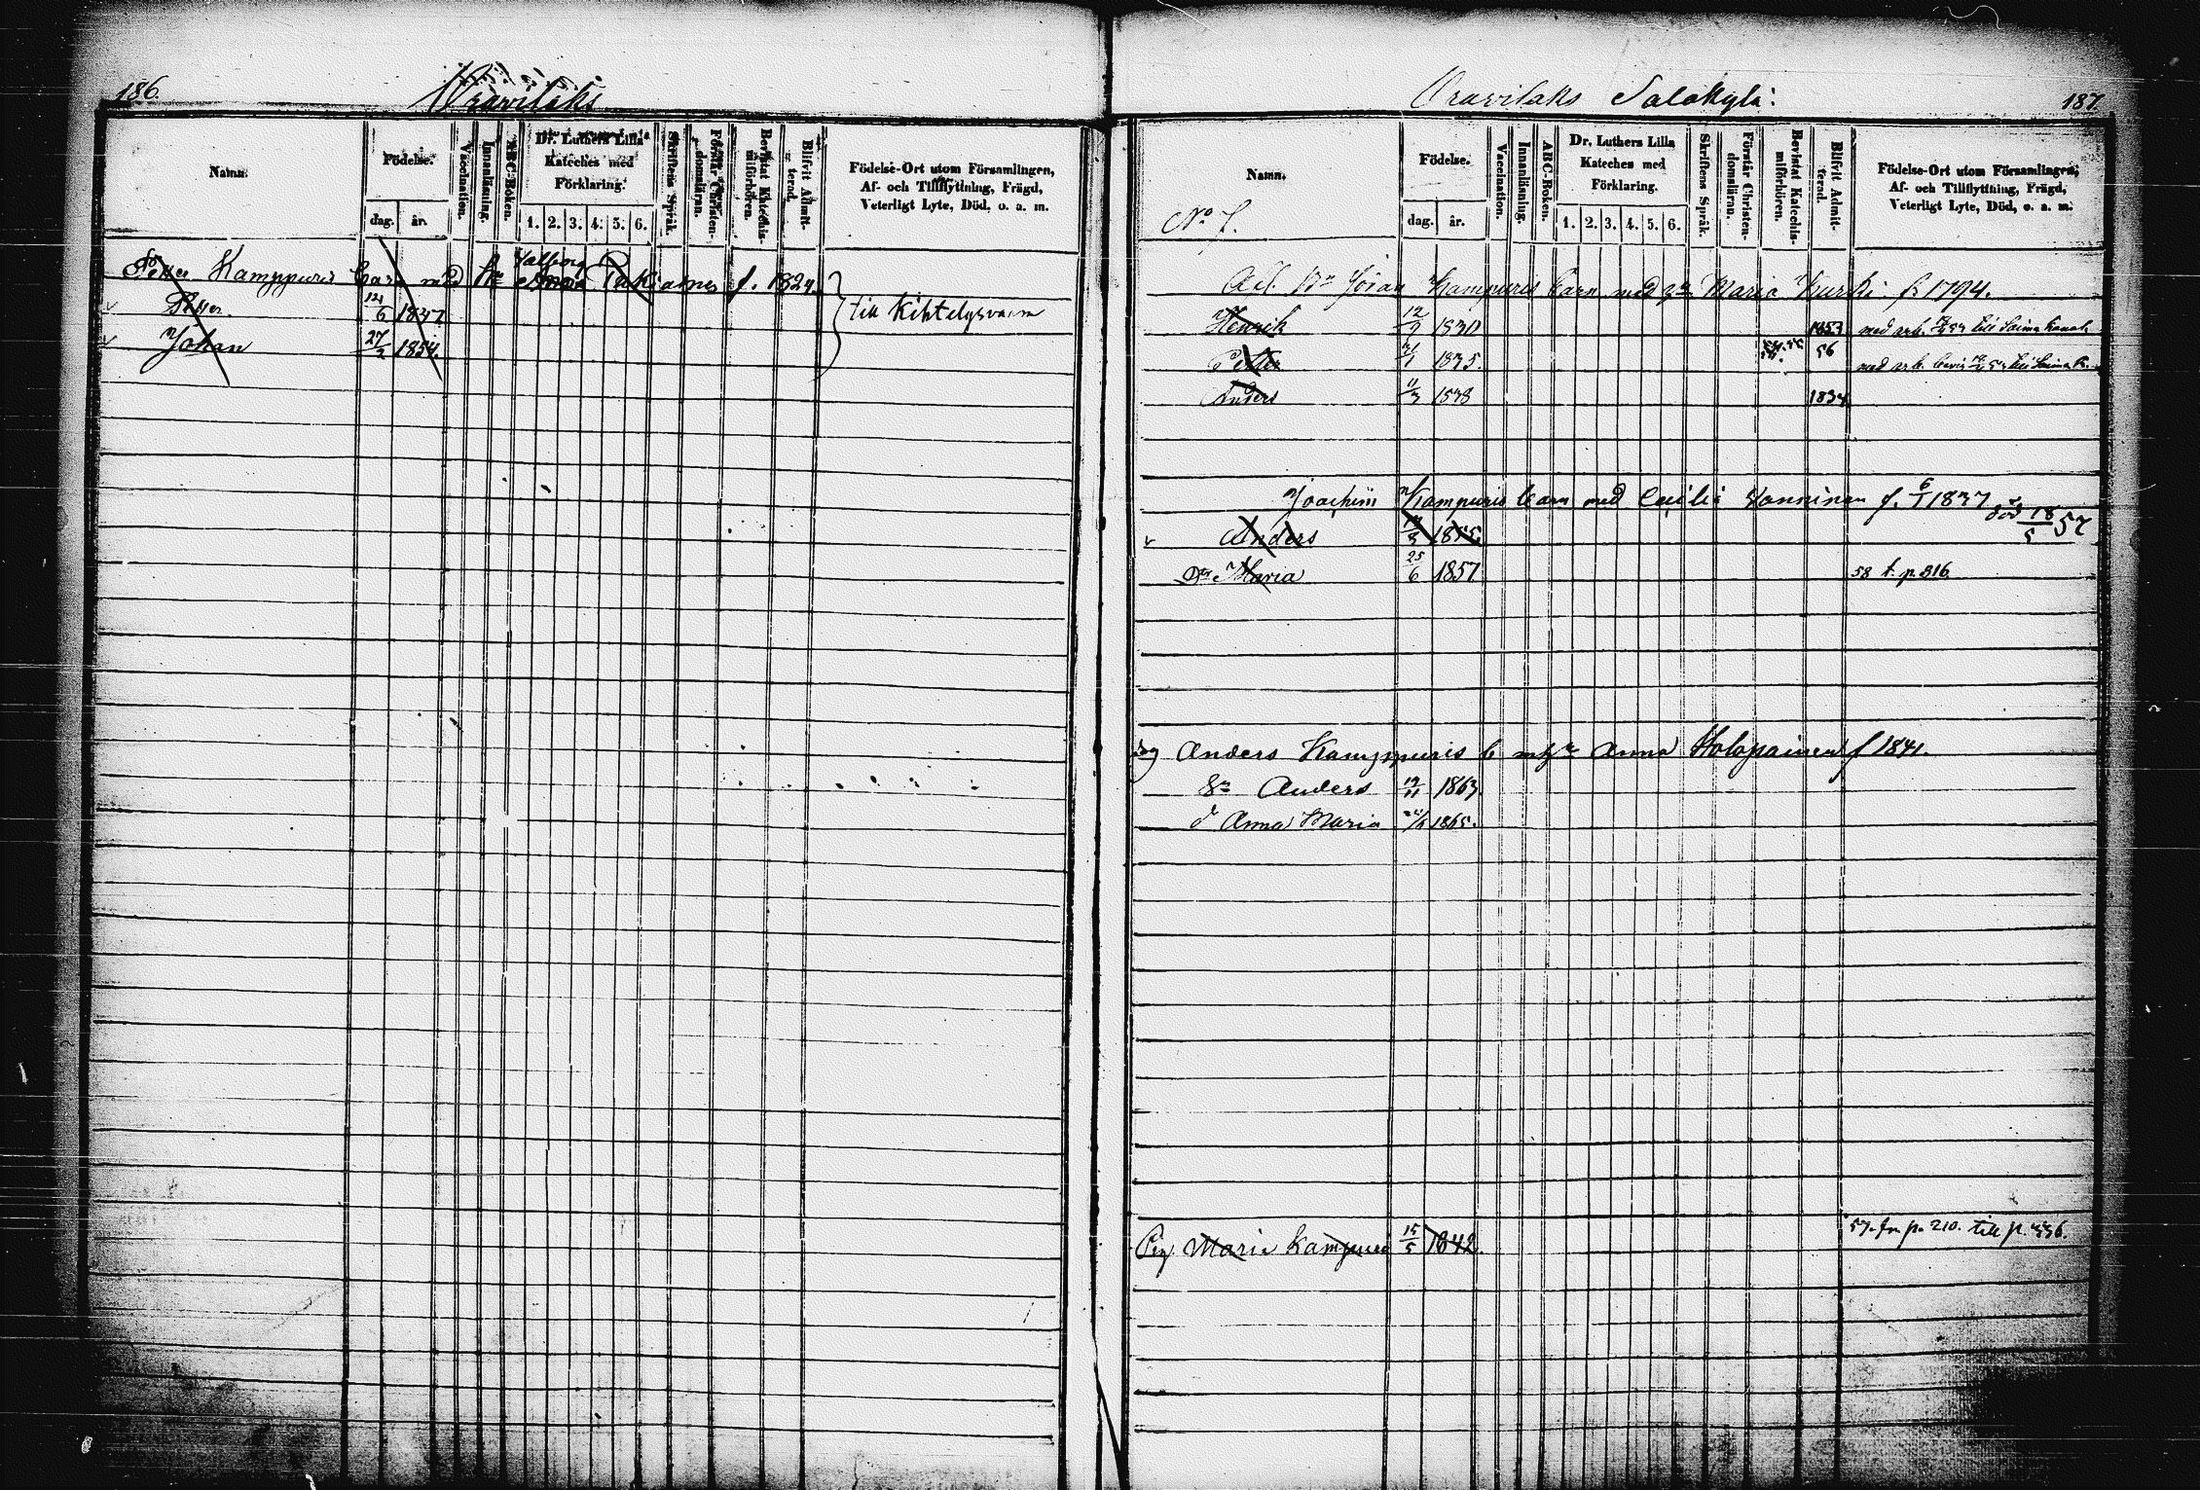 186.
Oravilaks
Namn.
Födelse.
dag.
år.
Vaccination.
Innanläsning.
ABC-Boken.
Dr. Luthers Lilla
Kateches med
Förklaring.
1. 2. 3. 4. 5. 6.
Skriftens Språk.
Förstår Christen-
domsläran.
Bevistat Katechis-
miförhören.
Blifvit Admit-
terad.
Födelse-Ort utom Församlingen,
Af- och Tillflyttning, Frägd,
Veterligt Lyte, Död, o. a. m.
Petter Kamppuris barn med Valborg f. 1824.
Petter 6 1847
till Kihtelysvaara
Johan 27/2 1854.
Oravilaks Salokylä:
187.
Namn.
No 7.
Födelse.
dag.
år.
Vaccination.
Innanläsning.
ABC-Boken.
Dr. Luthers Lilla
Kateches med
Förklaring.
1. 2. 3. 4. 5. 6.
Skriftens Språk.
Förstår Christen-
domsläran.
Bevistat Katechis-
miförhören.
Blifvit Admit-
terad.
Födelse-Ort utom Församlingen,
Af- och Tillflyttning, Frägd,
Veterligt Lyte, Död, o. a. m.
Kampuris barn med Maria Kurki f. 1794.
Henrik 12/9 1830 1853 med arb. till Saima Kanal
Petter 1835. 56 med arb. bevis till Saima K.
Anders 11/3 1838
Joachim Kampuris barn med Cecilia Vanninen f. 6/1 1837
Anders död 18/5 57
Maria 25/6 1857 58 t. p. 316
Anders Kamppuris b m Anna Holopainen f 1841.
Sn Anders 19/11 1863.
d Anna Maria 1865.
Pig. Maria Kampuri 15/5 1842. 57. fr p. 210. till p. 336.